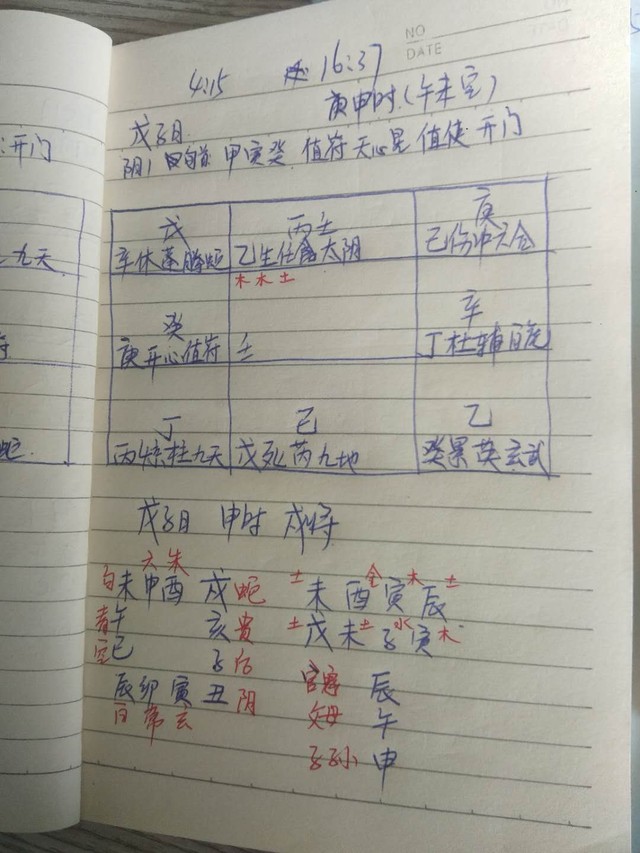 NO
DATE
4:15 16:37
庚申时(午未空)
戊子日
阴1 甲寅癸 值符 天心星 值使 开门
:开门
戊 丙壬 庚
辛休蓬螣蛇 乙生任禽太阴 己伤冲六合
木 木 土
九天
癸 辛
庚开心值符 壬 丁杜辅白虎
丁 己 乙
丙惊柱九天 戊死芮九地 癸景英玄武
蛇
戊子日 申时 戌将
六 朱
勾 未 申 酉 戌 蛇 土 未 酉 金 寅 木 辰 土
青 午 亥 贵 土 戊 未 土 子 水 寅 木
空 巳 子 后
辰 卯 寅 丑 阴 官 辰
白 常 玄 父母 午
子孙 申